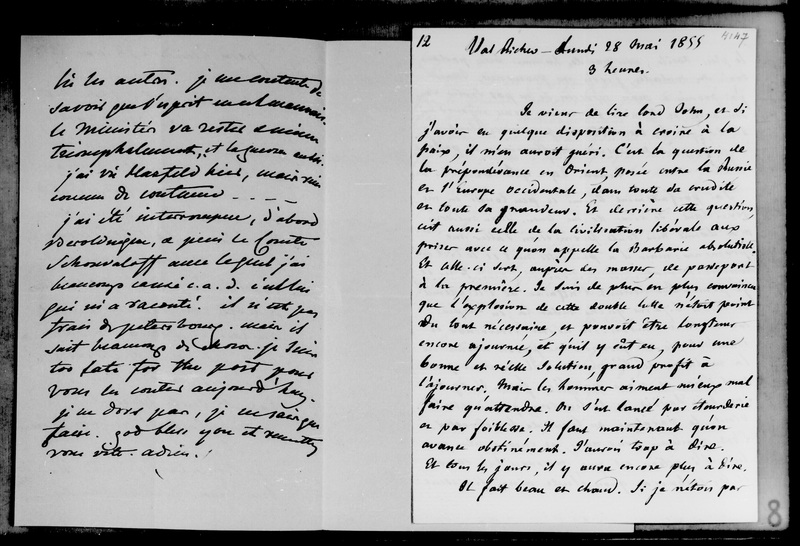 lu les autres. je me contente de
savoir que l'esprit
le Ministère va rester
triomphalement, et la guerre aussi.
j'ai vu Hatzfeld hier, mais rien
comme de coutume - - - -
j'ai été interrompue, d'abord
puis le Comte
Schouvaloff avec lequel j'ai
beaucoup causé c. a. d. c'est lui
qui m'a raconté. il n'est pas
frais de petersbourg. mais il
sait beaucoup de choses. je suis
too late for the post pour
vous les conter aujourd'hui.
je ne dors pas, je ne sais que
faire. god bless you et remettez
vous vite. adieu.
12 Val Richer - Lundi 28 Mai 1855 4147
3 heures.
Je viens de lire lord John, et si
j'avois eu quelque disposition à croire à la
paix, il m'en auroit guéri. C'est la question de
la prépondérance en Orient, posée entre la Russie
et l'Europe occidentale, dans toute sa crudité
et toute sa grandeur. Et derrière cette question,
c'est aussi celle de la civilisation libérale aux
prises avec ce qu'on appelle la Barbarie absolutiste.
Et celle-ci sert, auprès des masses, de passeport
à la première. Je suis de plus en plus convaincu
que l'explosion de cette double lutte n'étoit point
du tout nécessaire, et pouvoit être longtems
encore ajournée, et qu'il y eût eu, pour une
bonne et réelle solution, grand profit à
l'ajourner. Mais les hommes aiment mieux mal
faire qu'attendre. On s'est lancé par étourderie
ou par foiblesse. Il faut maintenant qu'on
avance obstinément. J'aurois trop à dire.
Et tous les jours, il y aura encore plus à dire.
Il fait beau et chaud. Si je n'étois pas
8